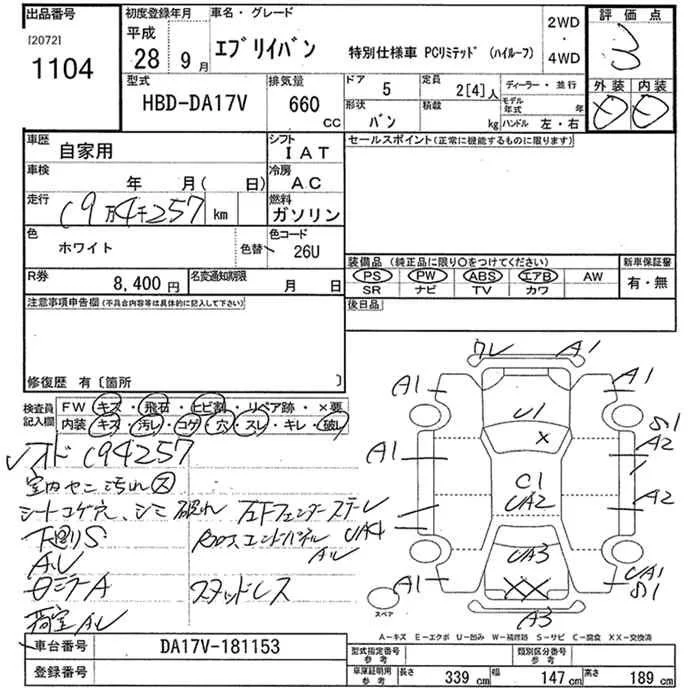 出品番号
[2072]
1104
初度登録年月
平成
28年 9月
車名・グレード
エブリイバン 特別仕様車 PCリミテッド (ハイルーフ)
2WD
・
4WD
評価点
3
外装 内装
型式
HBD-DA17V
排気量
660
CC
ドア
5
定員
2[4]人
ディーラー・並行
形状
バン
積載
kg
モデル年式
年
ハンドル 左・右
車歴
自家用
シフト
IAT
車検
年 月( 日)
冷房
AC
走行
(9万4千257 km
燃料
ガソリン
色
ホワイト
色替
色コード
26U
R券
8,400円
名変通知期限
月 日
セールスポイント(正常に機能するものに限ります)
装備品 (純正品に限り○をつけてください)
PS PW ABS エアB AW
SR ナビ TV カワ
新車保証書
有・無
後日品
注意事項申告欄(不具合内容等は具体的に記入して下さい)
修復歴 有〔箇所 〕
検査員記入欄
FW キズ・飛石・ヒビ割・リペア跡・×要
内装 キズ・汚レ・コゲ・穴・スレ・キレ・破レ
オド (94257
室内セニ汚れ大
シートコゲ穴、シミ破れ
下回りS
AU
ロミナA
荷室AU
左Fフェンダーステーレ
Rバックスエンドパネル
AU
UA4
スタッドレス
ワレ A1
A1 A1
U1
X
S1
A1 A2
C1
UA2
A2
UA3
XX
A1
UA1
S1
A3
スペア
A-キズ E-エクボ U-凹み W-補修跡 S-サビ C-腐食 XX-交換済
車台番号
DA17V-181153
登録番号
型式指定番号
参考
類別区分番号
参考
車庫証明用
参考
長さ 339 cm
幅 147 cm
高さ 189 cm